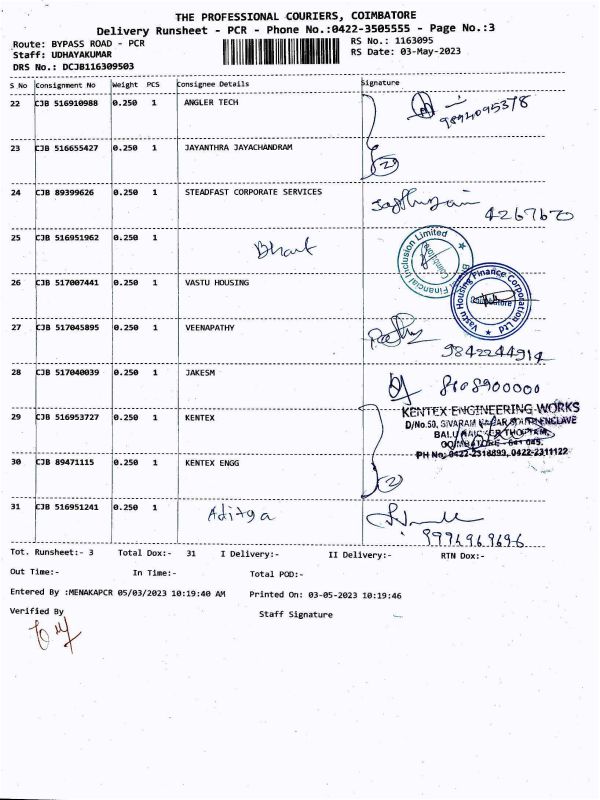 THE PROFESSIONAL COURIERS, COIMBATORE
Delivery Runsheet - PCR - Phone No.:0422-3505555 - Page No.:3
Route: BYPASS ROAD - PCR RS No.: 1163095
Staff: UDHAYAKUMAR RS Date: 03-May-2023
DRS No.: DCJB116309503
S No Consignment No Weight PCS Consignee Details Signature
22 CJB 516910988 0.250 1 ANGLER TECH 9894095378
23 CJB 516655427 0.250 1 JAYANTHRA JAYACHANDRAM
24 CJB 89399626 0.250 1 STEADFAST CORPORATE SERVICES 4267670
25 CJB 516951962 0.250 1 Bharat Financial Inclusion Limited Coimbatore
26 CJB 517007441 0.250 1 VASTU HOUSING Vastu Housing Finance Corporation Ltd Coimbatore
27 CJB 517045895 0.250 1 VEENAPATHY 9842244914
28 CJB 517040039 0.250 1 JAKESM 8108900000
29 CJB 516953727 0.250 1 KENTEX
KENTEX ENGINEERING WORKS
D/No.50, SIVARAM NAGAR, ENCLAVE
BALU NAICKER THOTTAM,
COIMBATORE - 641 045.
PH No: 0422-2318893, 0422-2311122
30 CJB 89471115 0.250 1 KENTEX ENGG (2)
31 CJB 516951241 0.250 1 Aditya 9994969696
Tot. Runsheet:- 3 Total Dox:- 31 I Delivery:- II Delivery:- RTN Dox:-
Out Time:- In Time:- Total POD:-
Entered By :MENAKAPCR 05/03/2023 10:19:40 AM Printed On: 03-05-2023 10:19:46
Verified By Staff Signature